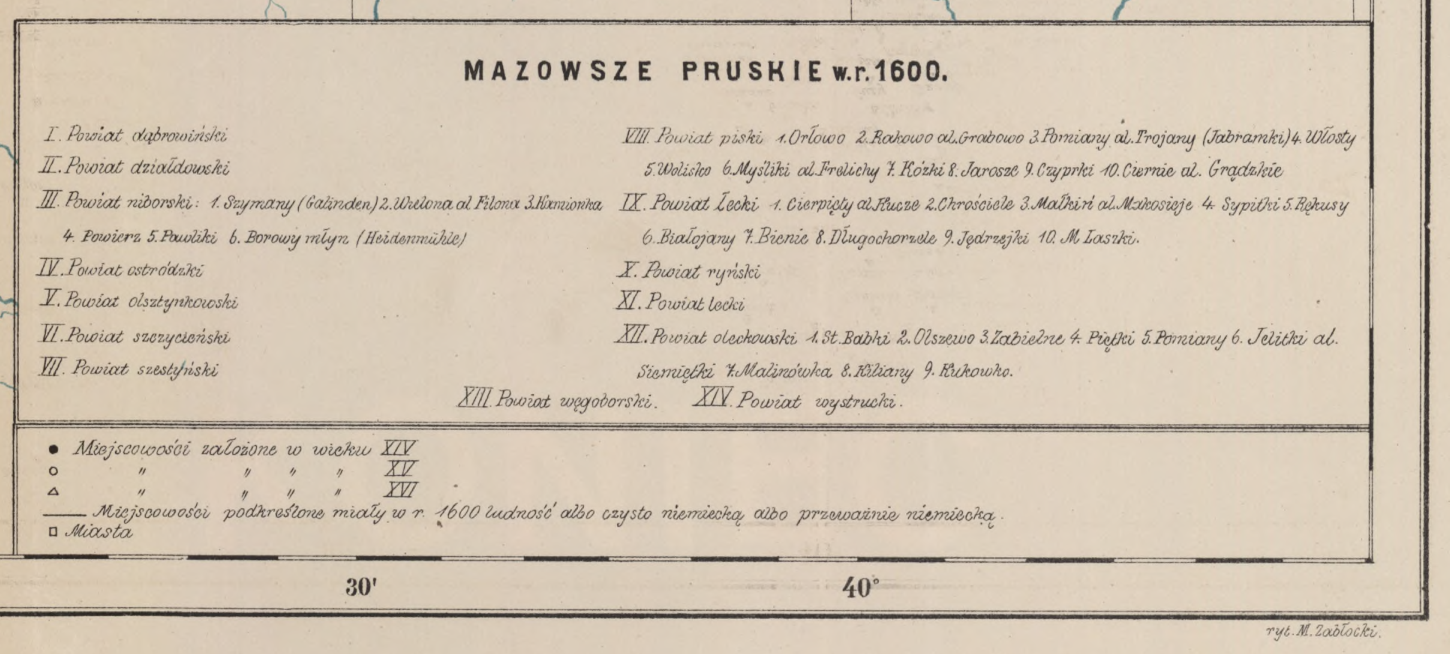 MAZOWSZE PRUSKIE w.r.1600.
I. Powiat dąbrowiński
II. Powiat działdowski
III. Powiat niborski: 1. Szymany (Galinden) 2. Wielona al Filona 3. Kamionka
4. Powierz 5. Pawliki 6. Borowy młyn (Heidenmühle)
IV. Powiat ostródzki
V. Powiat olsztynkowski
VI. Powiat szczycieński
VII. Powiat szestyński
VIII. Powiat piski 1. Orłowo 2. Rakowo al. Grabowo 3. Pomiany al. Trojany (Jabramki) 4. Włosty
5. Wolisko 6. Myśliki al. Frelichy 7. Kózki 8. Jarosze 9. Czyprki 10. Ciernie al. Grądzkie
IX. Powiat Łecki 1. Cierpięty al. Kucze 2. Chrościele 3. Małkiń al. Makosieje 4. Sypitki 5. Rękusy
6. Białojany 7. Bienie 8. Długochorzele 9. Jędrzejki 10. M Laszki.
X. Powiat ryński
XI. Powiat lecki
XII. Powiat oleckowski 1. St. Babki 2. Olszewo 3. Zabielne 4. Piętki 5. Pomiany 6. Jelitki al.
Siemiętki 7. Malinówka 8. Kiliany 9. Kukowko.
XIII. Powiat węgoborski. XIV. Powiat wystrucki.
Miejscowości założone w wieku XIV
" " " " XV
" " " " XVI
Miejscowości podkreślone miały w r. 1600 ludność albo czysto niemiecką albo przeważnie niemiecką.
Miasta
30' 40°
ryt. M. Zabłocki.